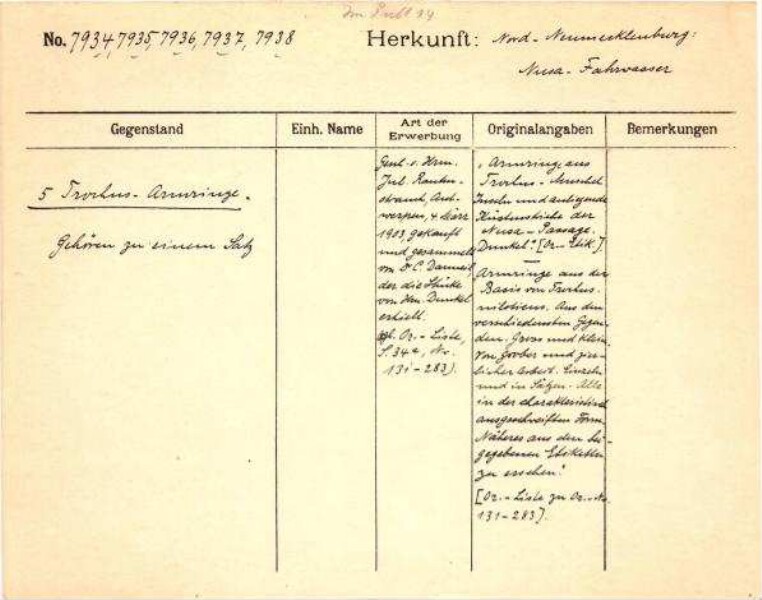 No. 7934, 7935, 7936, 7937, 7938
Herkunft: Nord-Neumecklenburg:
Nusa-Fahrwasser
Gegenstand
Einh. Name
Art der
Erwerbung
Originalangaben
Bemerkungen
5 Trochus-Armringe.
Gehören zu einem Satz
Gesch. v. Hrn.
Jul. Rauten-
strauch, Ant-
werpen, 4 März
1903, gekauft
und gesammelt
von Dr C. Danneil,
der die Stücke
von Hrn. Dunkel
erhielt.
vgl. Or.-Liste,
S. 34a, No.
131-283).
"Armringe aus
Trochus-Muschel
Inseln und anliegende
Küstenstriche der
Nusa-Passage.
Dunkel." [Or.-Etik.].
"Armringe aus der
Basis von Trochus
niloticus. Aus den
verschiedensten Gegen-
den. Gross und klein
von grober und zier-
licher Arbeit. Einzeln
und in Sätzen. Alle
in der charakteristisch
ausgeschweiften Form.
Näheres aus den bei-
gegebenen Etiketten
zu ersehen."
[Or.-Liste zu Or.-No.
131-283].